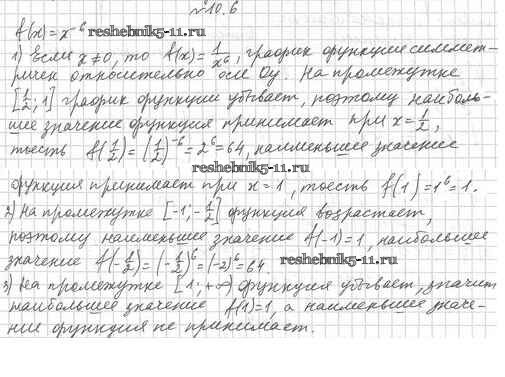 №10.6
f(x)=x⁻⁶ reshebnik5-11.ru
1) Если x≠0, то f(x)=1/x⁶, график функции симмет-
ричен относительно оси Oy. На промежутке
[1/2; 1] график функции убывает, поэтому наиболь-
шее значение функция принимает при x=1/2,
тоесть f(1/2)=(1/2)⁻⁶=2⁶=64, наименьшее значение
reshebnik5-11.ru
функция принимает при x=1, тоесть f(1)=1⁶=1.
2) На промежутке [-1;-1/2] функция возрастает,
поэтому наименьшее значение f(-1)=1, наибольшее
значение f(-1/2)=(-1/2)⁻⁶=(-2)⁶=64. reshebnik5-11.ru
3) На промежутке [1;+∞) функция убывает, значит
наибольшее значение f(1)=1, а наименьшее значе-
ние функция не принимает.